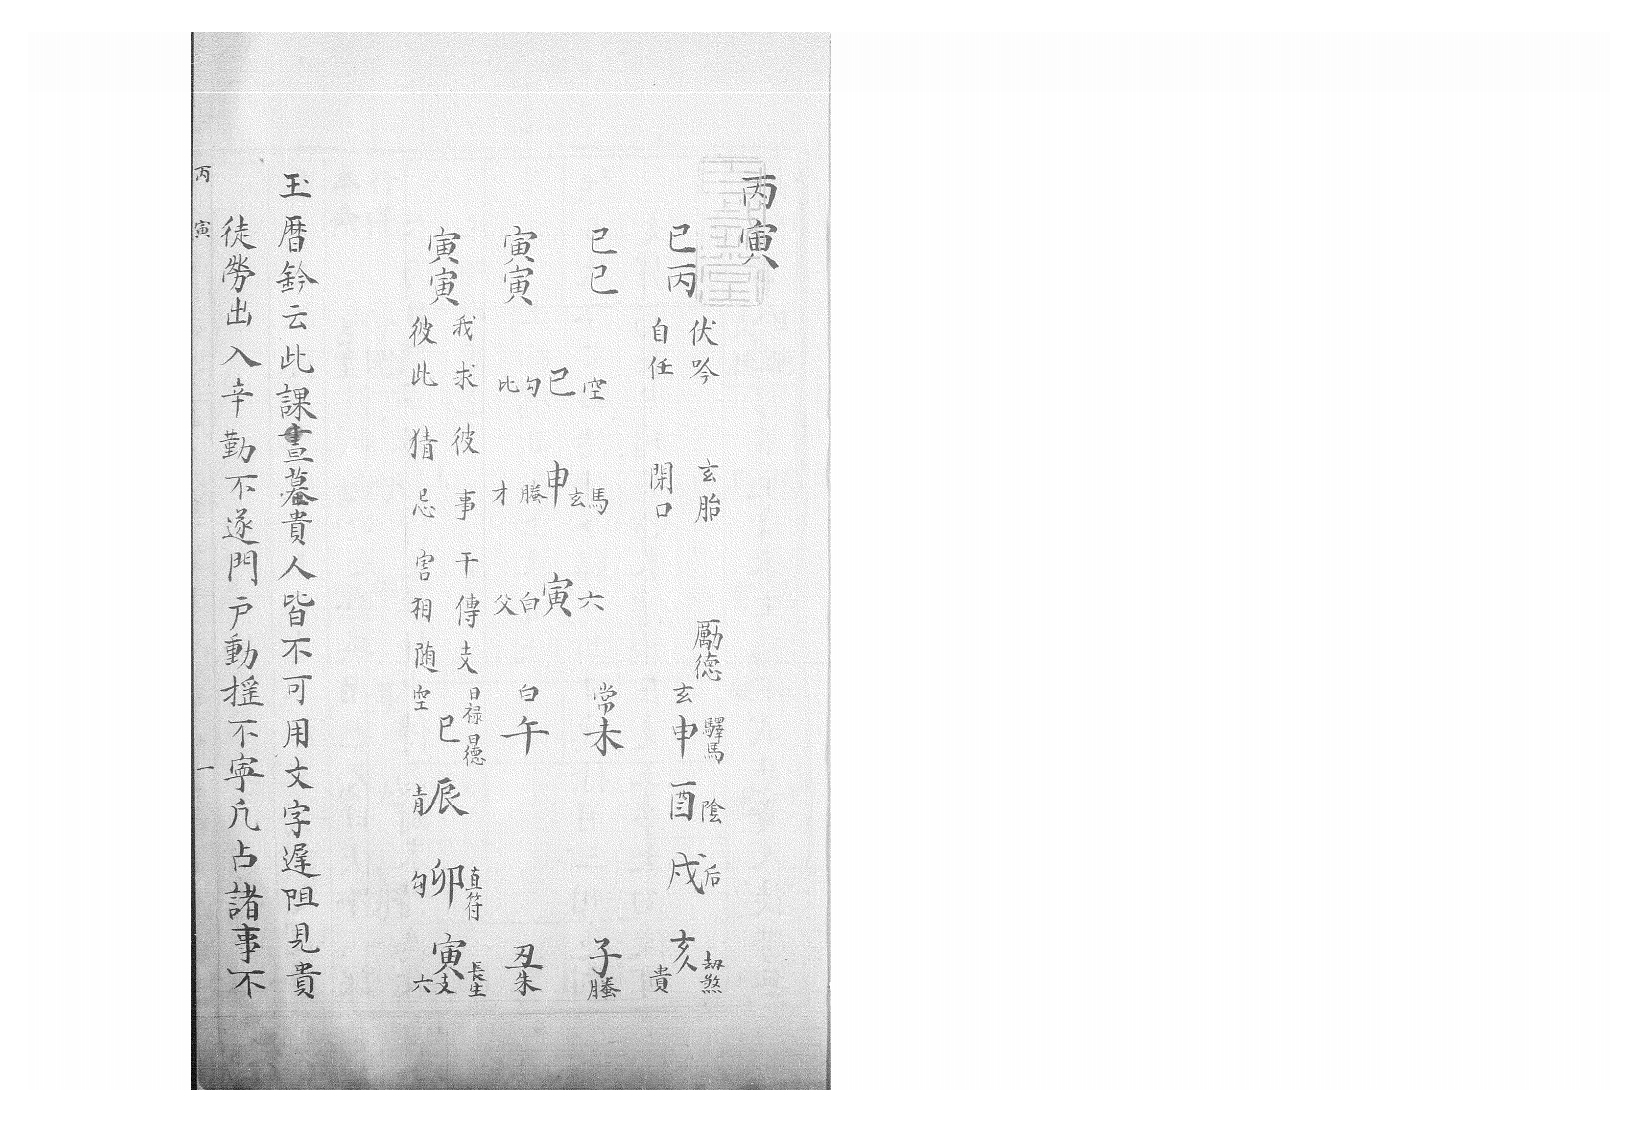 丙寅
巳丙 巳巳 寅寅 寅寅
伏吟 玄胎 厲德
自任 閉口
空 巳 勾 比
馬 玄 申 螣 才
六 寅 白 父
我求彼事干傳支
彼此猜忌害相随
驛馬 申 玄
陰 酉
后 戌
劫煞 亥 貴
常 未
子 螣
白 午
丑 朱
日禄 日德 巳 空
辰 青
直符 卯 勾
長生 寅 支 六
玉曆鈐云此課晝墓貴人皆不可用文字遲阻見貴
徒勞出入辛勤不遂門户動摇不寧凡占諸事不
丙寅 一